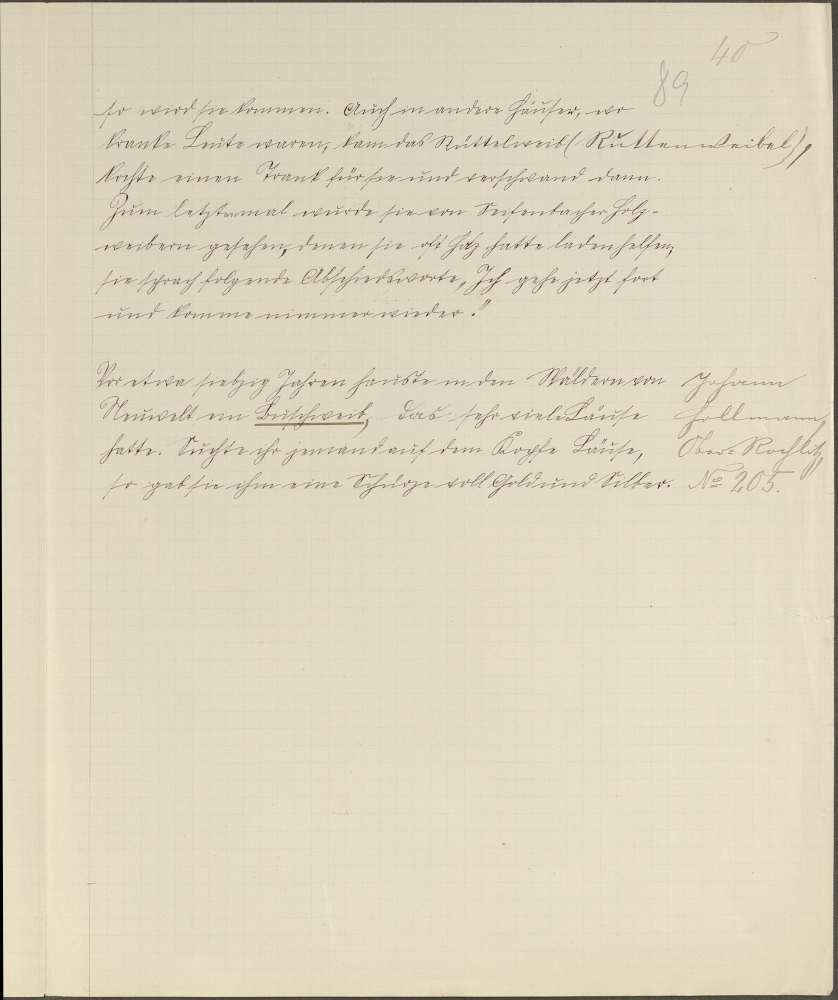 40
89
so wird sie kommen. Auch in andere Häuser, wo
kranke Leute waren, kam das Rüttelweib (Ruttenweibel),
kochte einen Trank für sie und verschwand dann.
Zum letztenmal wurde sie von Seifenbacher Holz-
weibern gesehen, denen sie oft Holz hatte laden helfen,
sie sprach folgende Abschiedsworte, „Ich gehe jetzt fort
und komme nimmer wieder."
Vor etwa siebzig Jahren hauste in den Wäldern von
Neuwelt ein Buschweib, das sehr viele Läuse
hatte. Suchte ihr jemand auf dem Kopfe Läuse,
so gab sie ihm eine Schürze voll Gold und Silber.
Johann
Hollmann,
Ober-Rochlitz,
No 205.